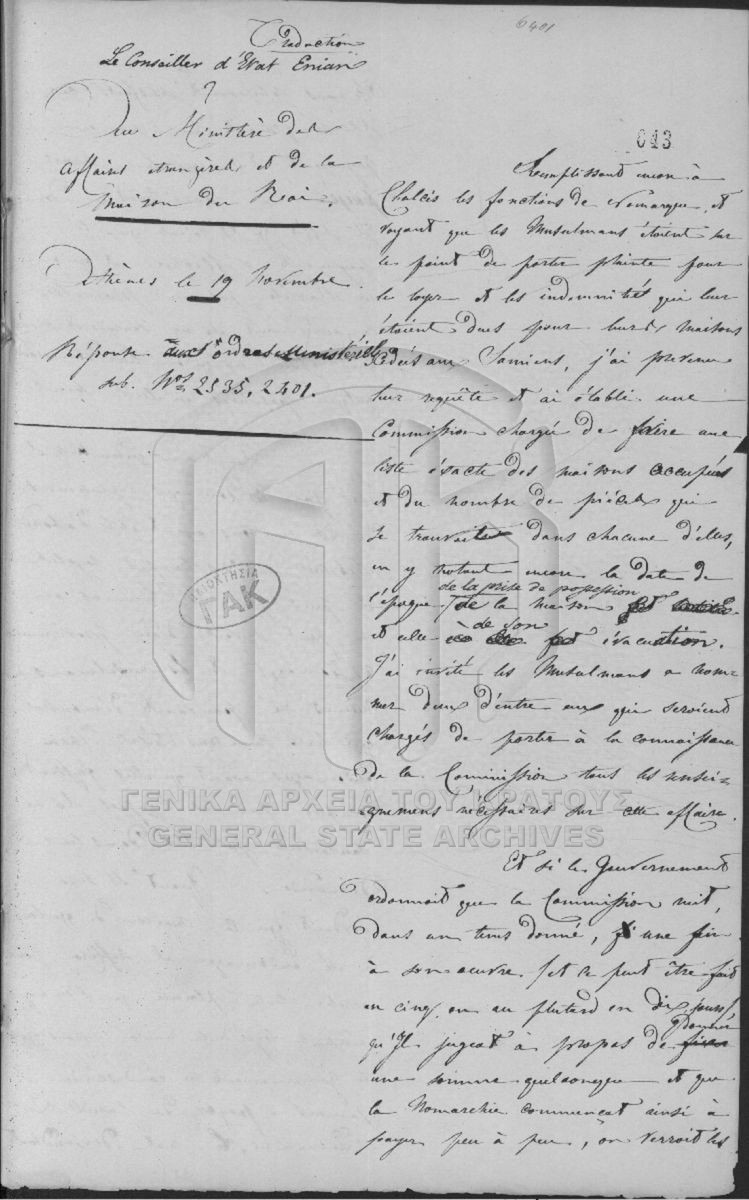 6401
Traduction
Le Conseiller d'Etat Enian
?
Au Ministère des
affaires étrangères et de la
Maison du Roi.
Athènes le 19 Novembre.
Réponse aux ordres Ministériels
sub. Nos 2535, 2401.
043
Remplissant encore à
Chalcis les fonctions de Nomarque, et
voyant que les Musulmans étoient sur
le point de porter plainte pour
le loyer et les indemnités qui leur
étoient dues pour leurs maisons
cédées aux Samiens, j'ai prévenu
leur requête et ai établi une
Commission chargée de faire une
liste éxacte des maisons occupées
et du nombre de pièces qui
se trouvoient dans chacune d'elles,
en y notant encore la date de
de la prise de possession
l'époque de la maison
de son
et celle évacuation.
J'ai invité les Musulmans a nom-
mer deux d'entre eux qui seroient
chargés de porter à la connaissance
de la Commission tous les rensei-
gnemens nécessaires sur cette affaire.
Et si le Gouvernement
ordonnoit que la Commission mit,
dans un tems donné, une fin
à son œuvre (et ce peut être fait
en cinq, ou au plutard en dix jours)
donner
qu'Il jugeat a propos de
une somme quelconque et que
la Nomarchie commençat ainsi à
payer peu à peu, on verroit les
ΑΠΟΚΤΗΣΙΑ
ΓΑΚ
ΓΕΝΙΚΑ ΑΡΧΕΙΑ ΤΟΥ ΚΡΑΤΟΥΣ
GENERAL STATE ARCHIVES